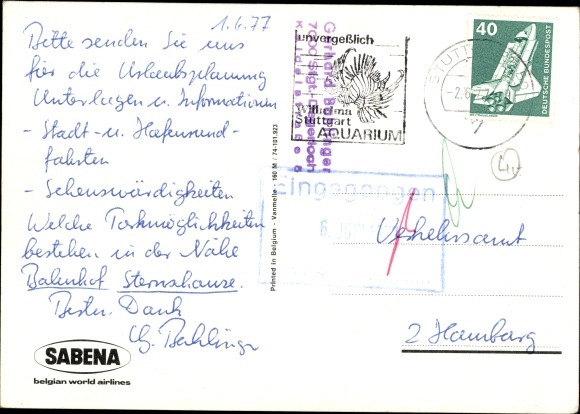 1.6.77
Bitte senden Sie uns
für die Urlaubsplanung
Unterlagen u. Informationen
- Stadt- u. Hafenrund-
fahrten
- Sehenswürdigkeiten
Welche Parkmöglichkeiten
bestehen in der Nähe
Bahnhof Sternschanze.
Besten Dank
SABENA
belgian world airlines
Printed in Belgium - Vanmelle - 160 M / 74-101.923
unvergeßlich
Wilhelma
Stuttgart
AQUARIUM
Gerhard
7000 Stgt.-
STUTTGART
-2.6.77
40
DEUTSCHE BUNDESPOST
Eingegangen
Verkehrsamt
2 Hamburg